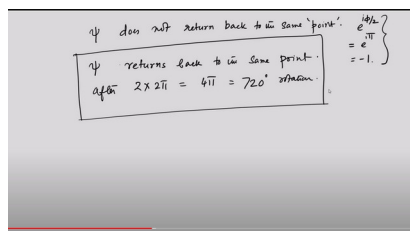 ψ does not return back to its same 'point'. e^{iφ/2}
= e^{iπ}
= -1.
ψ returns back to its same point.
after 2×2π = 4π = 720° rotation.